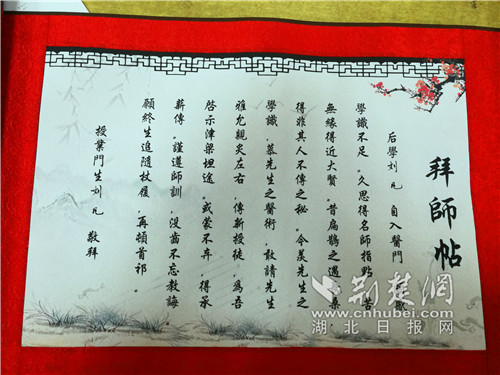 拜師帖
后學刘凡 自入醫門
學識不足。久思得名師指點
無緣得近大賢。昔扁鵲之遇
得非其人不傳之秘。今羨先生之
學識。慕先生之醫術，敢請先生
雅允親炙左右，傳薪授徒，爲吾
啓示津梁坦途。或蒙不弃，得承
薪傳。謹遵師訓，没齒不忘教誨
願終生追隨杖履，再頓首祁。
授業門生刘凡 敬拜
荆楚網
www.cnhubei.com
湖北日报网